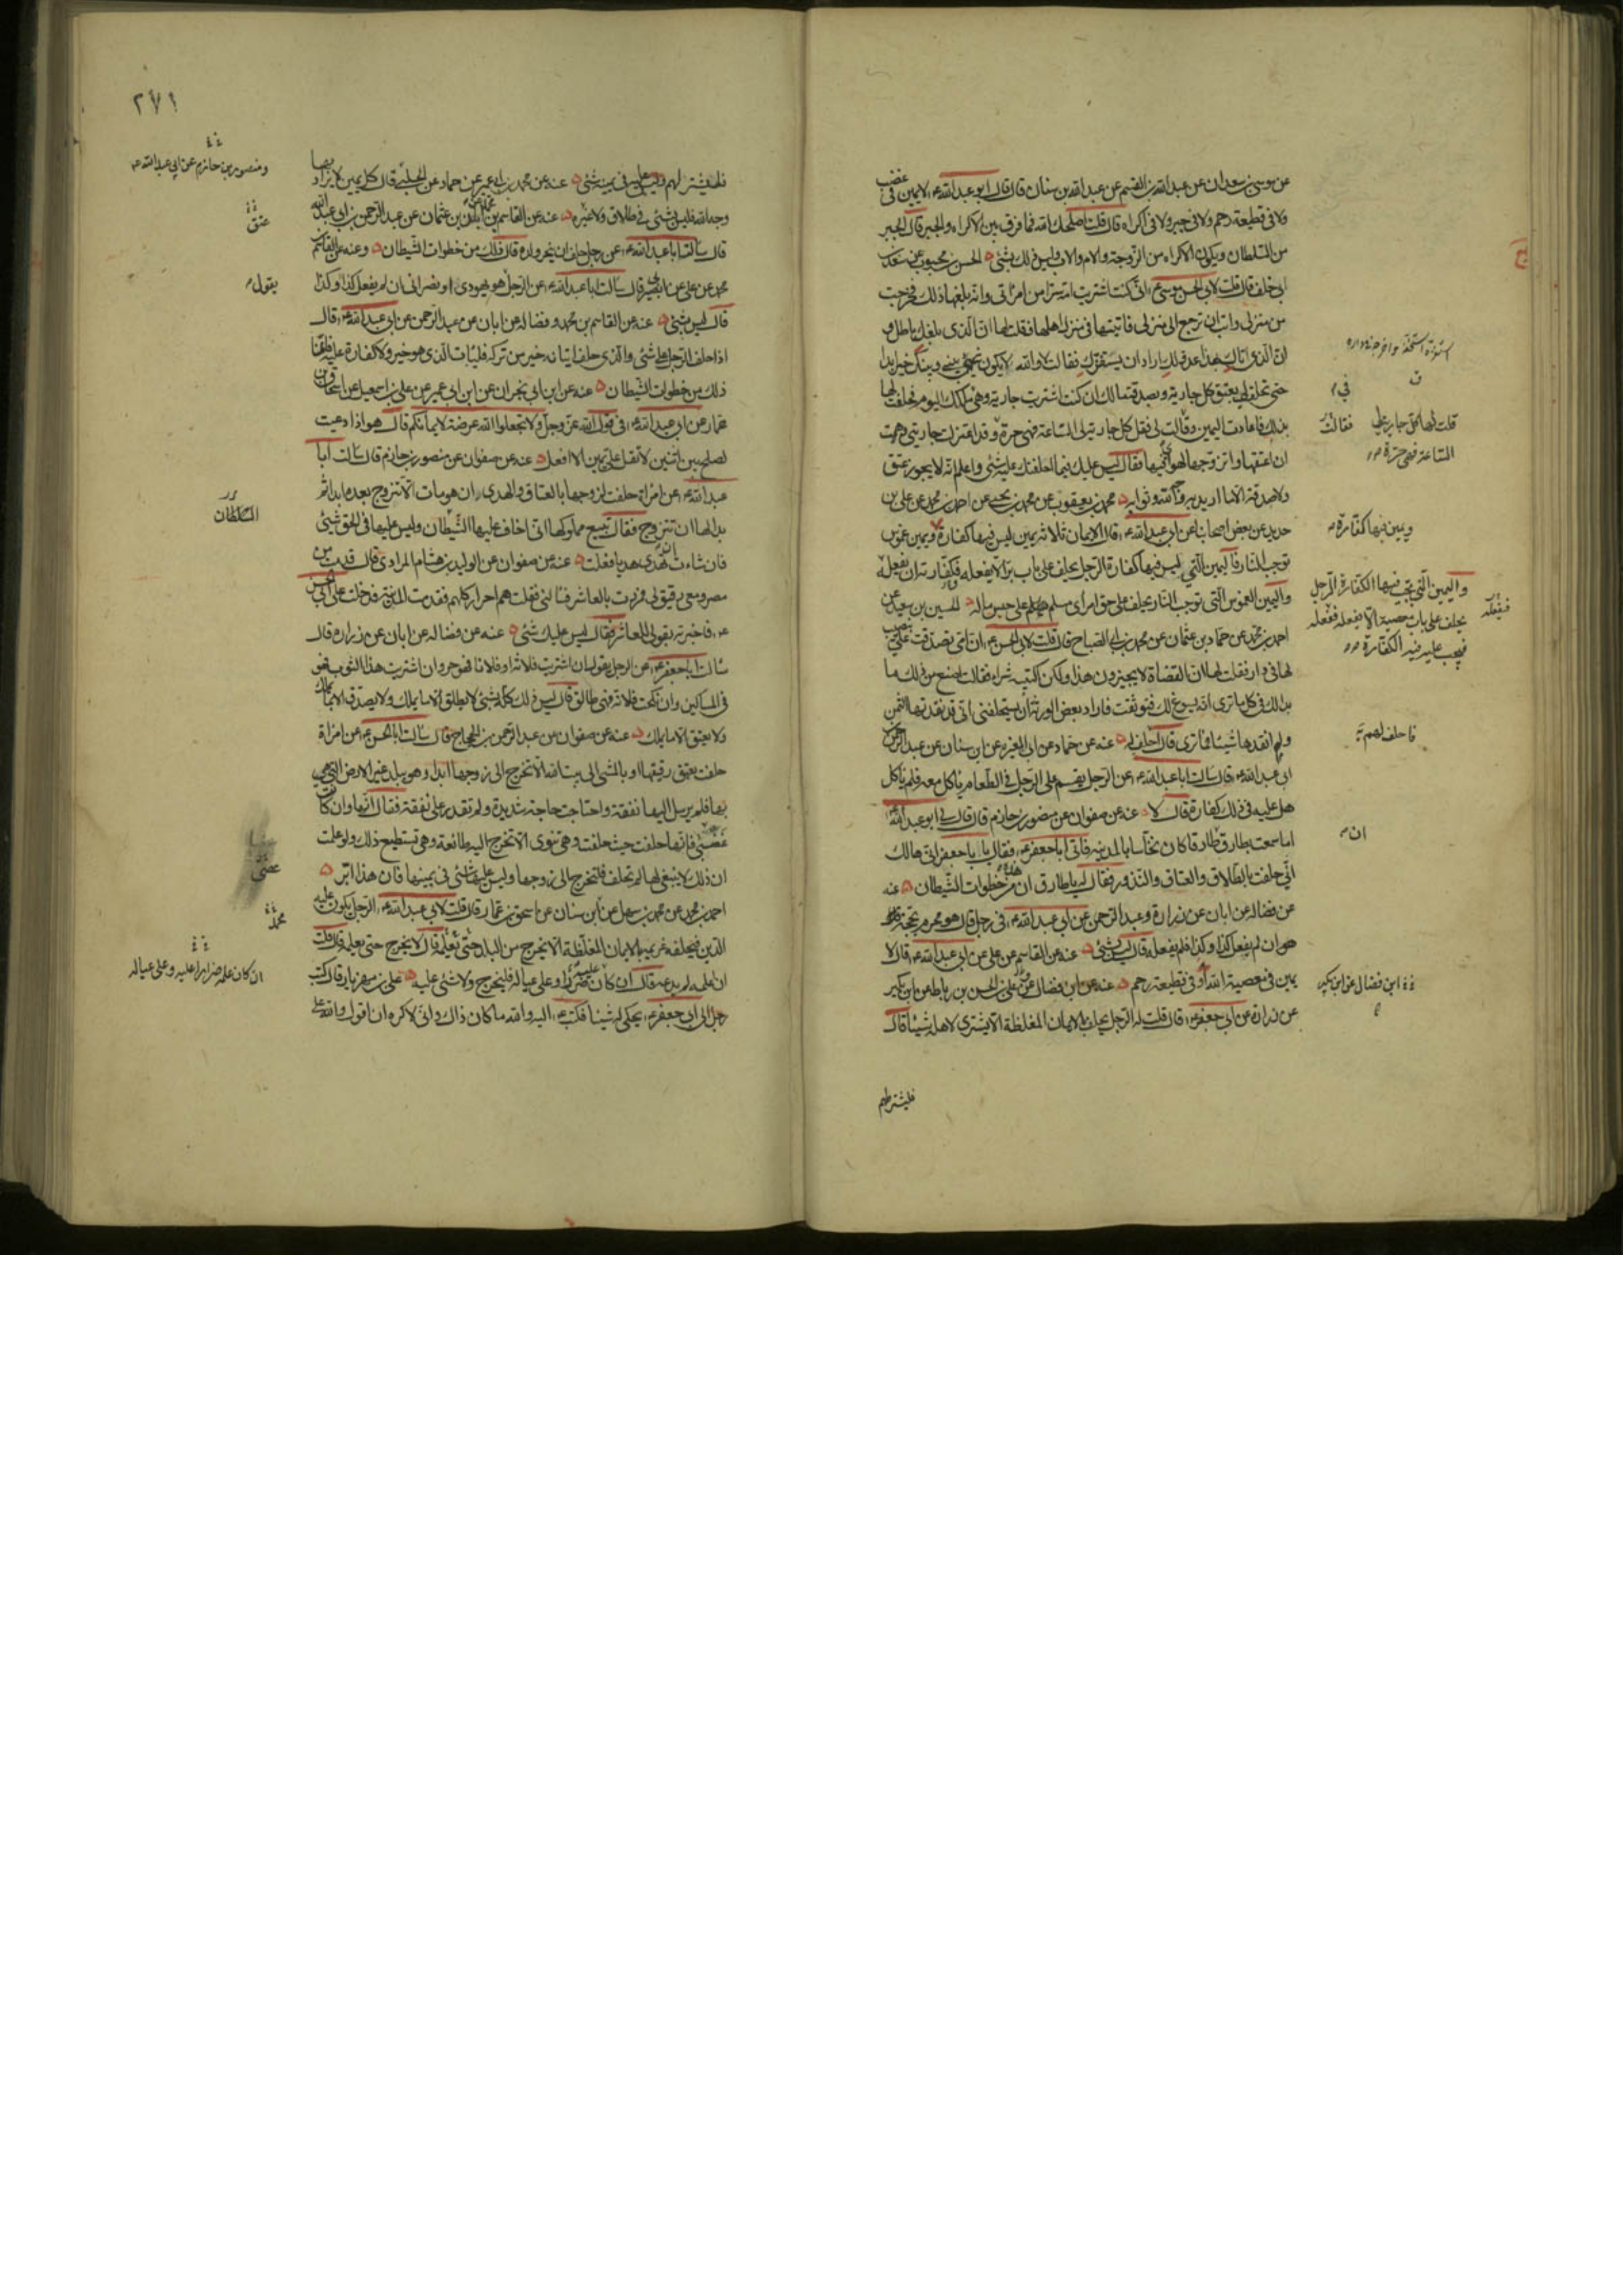 عن موسى بن سعدان عن عبد الله بن القسم عن عبد الله بن سنان قال قال ابو عبد الله ع لا يمين فى غضب
ولا فى قطيعة رحم ولا فى جبر ولا فى اكراه قال قلت اصلحك الله فما فرق بين الاكراه والجبر قال الجبر
من السلطان ويكون الاكراه من الزوجة والام والاب وليس ذلك بشئ الحسن بن محبوب عن سعد بن
ابى خلف قال قلت لابى الحسن موسى ع انى كنت اشتريت امة سرا من امرأتى وانه بلغها ذلك فخرجت
من منزلى وابت ان ترجع الى منزلى فاتيتها فى منزل اهلها فقلت لها ان الذى بلغك باطل و
ان الذى اتاك بهذا عدو لك اراد ان يستفزك فقالت لا والله لا يكون بينى وبينك خير ابدا
حتى تحلف لى بعتق كل جارية وبصدقة مالك ان كنت اشتريت جارية وهى فى ملكك اليوم فحلفت لها
بذلك فاعادت اليمين وقالت لى فقل كل جارية لى الساعة فهى حرة وقد اعتزلت جاريتى وهممت
ان اعتقها واتزوجها لهواى فيها فقال ليس عليك فيما احلفتك عليه شئ واعلم انه لا يجوز عتق
ولا صدقة الا ما اريد به وجه الله وثوابه محمد بن يعقوب عن محمد بن يحيى عن احمد بن محمد عن على بن
حديد عن بعض اصحابنا عن ابى عبد الله ع قال الايمان ثلاثة يمين ليس فيها كفارة ويمين غموس
توجب النار فاليمين التى ليس فيها كفارة الرجل يحلف على باب بر الا يفعله فكفارته ان يفعله
واليمين الغموس التى توجب النار يحلف على حق امرئ مسلم على حبس ماله الحسين بن سعيد عن
احمد بن محمد عن حماد بن عثمان عن محمد بن ابى الصباح قال قلت لابى الحسن ع ان امى تصدقت على بنصيب
لها فى دار فقلت لها ان القضاة لا يجيزون هذا ولكن اكتبيه شراء فقالت اصنع من ذلك ما
بدا لك فى كل ما ترى انه يسوغ لك فتوثقت فاراد بعض الورثة ان يستحلفنى انى قد نقدتها الثمن
ولم انقدها شيئا فما ترى قال احلف له عنه عن حماد عن ابى المغرا عن ابن سنان عن عبد الرحمن بن
ابى عبد الله ع قال سالت ابا عبد الله ع عن الرجل يقسم على الرجل فى الطعام يأكل معه فلم يأكل
هل عليه فى ذلك كفارة قال لا عنه عن صفوان عن منصور بن حازم قال قال لى ابو عبد الله ع
اما سمعت بطارق ان طارقا كان نخاسا بالمدينة فاتى ابا جعفر ع فقال يا با جعفر انى هالك
انى حلفت بالطلاق والعتاق والنذور فقال له يا طارق ان هذه من خطوات الشيطان عنه
عن فضالة عن ابان عن زرارة وعبد الرحمن عن ابى عبد الله ع فى رجل قال هو محرم بحجة
هو ان لم يفعل كذا وكذا فلم يفعله قال ليس بشئ عنه عن القاسم عن على عن ابى عبد الله ع قال لا
يمين فى معصية الله او فى قطيعة رحم عنه عن ابن فضال عن على بن الحسن بن رباط عن ابن بكير
عن زرارة عن ابى جعفر ع قال قلت له الرجل يحلف بالايمان المغلظة الا يشترى لاهله شيئا قال
فليشتر لهم
فى
فقالت
قلت لها كل جارية لى
الساعة فهى حرة
ويمين فيها كفارة
واليمين التى تجب فيها الكفارة الرجل
يحلف على باب معصية الا يفعله ففعله
فيجب عليه فيه الكفارة
فيفعله
فاحلف لهم
ان
ابن فضال عن ابن بكير
٢٧١
فليشتر لهم وليس عليه فى يمينه شئ عنه عن محمد بن ابى عمير عن حماد عن الحلبى قال كل يمين لا يراد بها
وجه الله فليس بشئ فى طلاق ولا غيره عنه عن القاسم بن محمد عن ابان بن عثمان عن عبد الرحمن بن ابى عبد الله
قال سالت ابا عبد الله ع عن رجل حلف ان ينحر ولده قال ذلك من خطوات الشيطان وعنه عن القاسم بن
محمد عن على عن ابى بصير قال سالت ابا عبد الله ع عن الرجل هو يهودى او نصرانى ان لم يفعل كذا وكذا
قال ليس بشئ عنه عن القاسم بن محمد وفضالة عن ابان عن عبد الرحمن عن ابى عبد الله ع قال
اذا حلف الرجل على شئ والذى حلف اتيانه خير من تركه فليأت الذى هو خير ولا كفارة عليه فانما
ذلك من خطوات الشيطان عنه عن ابن ابى نجران عن ابن ابى عمير عن على بن اسمعيل عن اسحاق بن
عمار عن ابى عبد الله ع فى قول الله عز وجل ولا تجعلوا الله عرضة لايمانكم قال هو اذا دعيت
لصلح بين اثنين لا تقل على يمين الا افعل عنه عن صفوان عن منصور بن حازم قال سالت ابا
عبد الله ع عن امراة حلفت لزوجها بالعتاق والهدى ان هو مات الا تتزوج بعده ابدا ثم
بدا لها ان تتزوج فقال تبيع مملوكها انى اخاف عليها الشيطان وليس عليها فى الحق شئ
فان شاءت ان تهدى هديا فعلت عنه عن صفوان عن الوليد بن هشام المرادى قال قدمت من
مصر ومعى رقيق لى فمررت بالعاشر فسالنى فقلت هم احرار كلهم فقدمت المدينة فدخلت على ابى الحسن
ع فاخبرته بقولى للعاشر فقال ليس عليك شئ عنه عن فضالة عن ابان عن زرارة قال
سالت ابا جعفر ع عن الرجل يقول ان اشتريت فلانة او فلانا فهو حر وان اشتريت هذا الثوب فهو
فى المساكين وان نكحت فلانة فهى طالق قال ليس ذلك كله بشئ لا يطلق الا ما يملك ولا يصدق الا بما يملك
ولا يعتق الا ما يملك عنه عن صفوان عن عبد الرحمن بن الحجاج قال سالت ابا الحسن ع عن امراة
حلفت بعتق رقيقها او بالمشى الى بيت الله الا تخرج الى زوجها ابدا وهو ببلد غير الارض التى هى
بها فلم يرسل اليها نفقة واحتاجت حاجة شديدة ولم تقدر على نفقة فقال انها وان كانت
غضبى فانها حلفت حيث حلفت وهى تنوى الا تخرج اليه طائعة وهى تستطيع ذلك ولو علمت
ان ذلك لا ينبغى لها لم تحلف فلتخرج الى زوجها وليس عليها شئ فى يمينها فان هذا ابر
احمد بن محمد عن محمد بن سهل عن ابن سنان عن اسحق بن عمار قال قلت لابى عبد الله ع الرجل يكون عليه
الدين فيحلفه غريمه بالايمان المغلظة الا يخرج من البلد حتى تعلمه قال لا يخرج حتى يعلمه قال قلت
ان اعلمه لم يدعه قال ان كان عليه ضررا وعلى عياله فليخرج ولا شئ عليه على بن مهزيار قال كتب
رجل الى ابى جعفر ع يحكى له شيئا فكتب ع اليه والله ما كان ذاك وانى لاكره ان اقول والله على
ومنصور بن حازم عن ابى عبد الله ع
عتق
يقول
السلطان
محمد
ان كان علمه ضررا عليه وعلى عياله